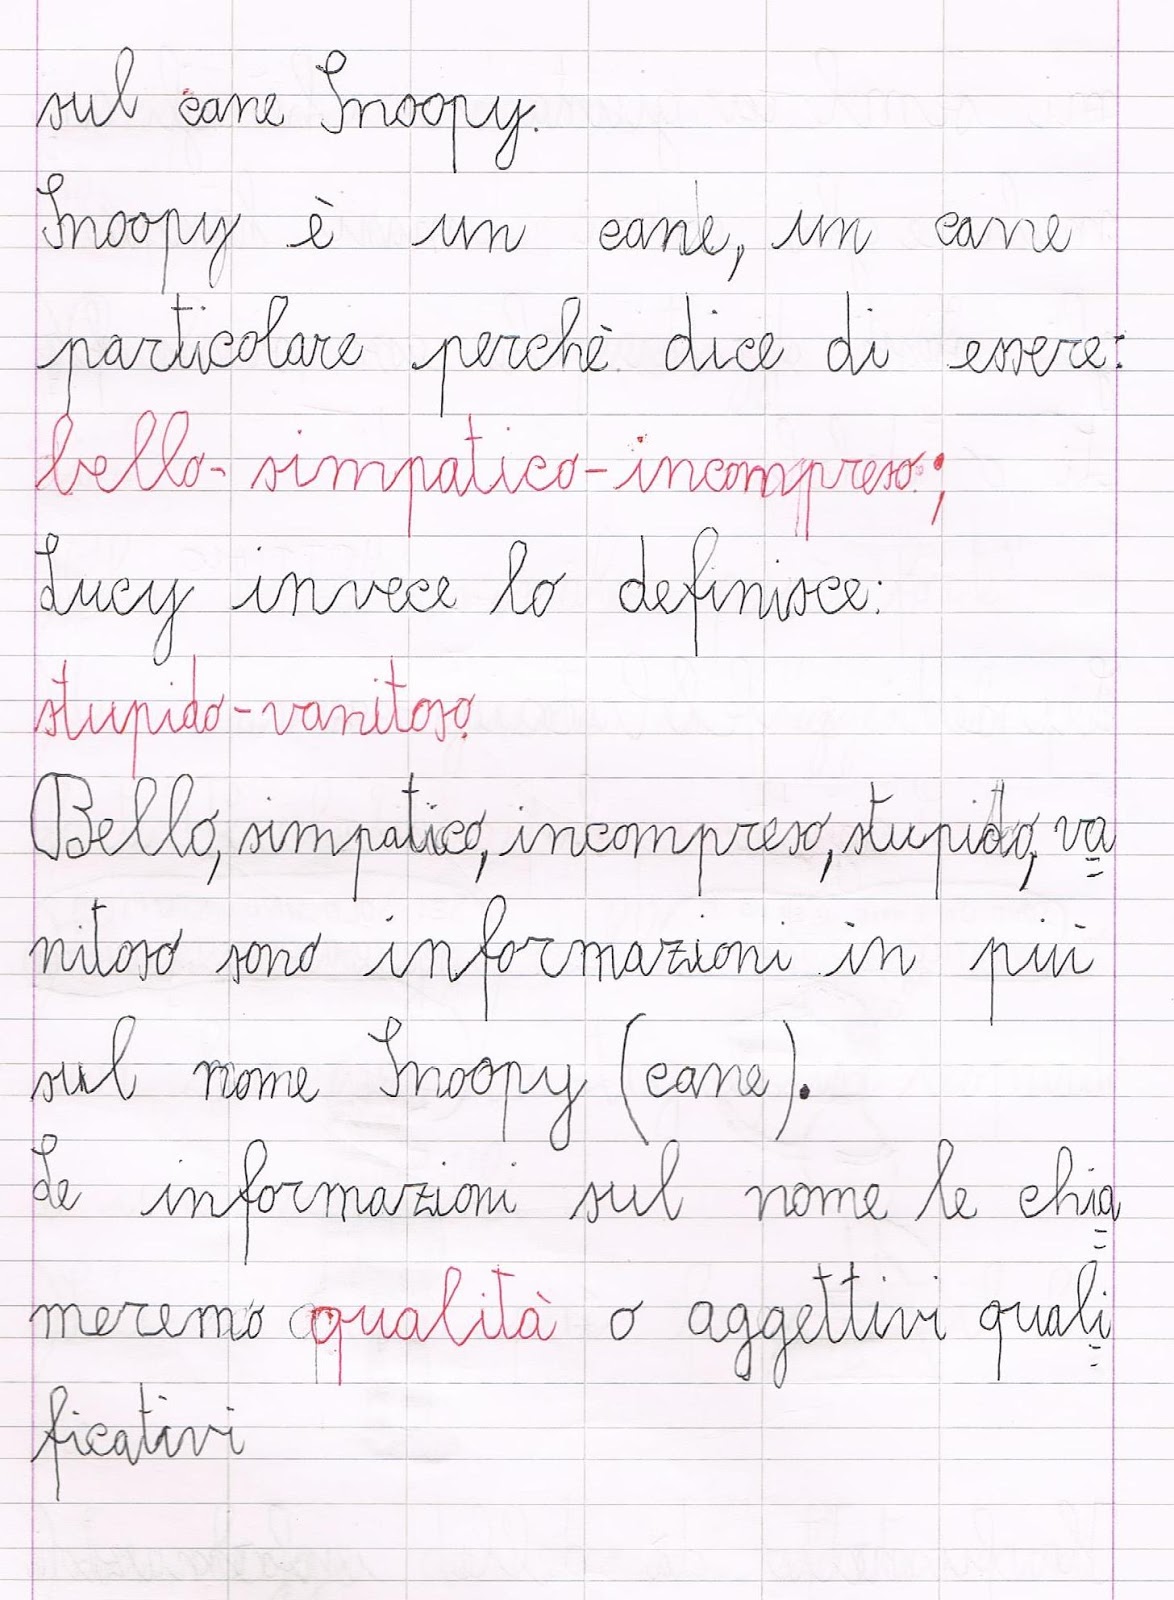 sul cane Snoopy.
Snoopy è un cane, un cane
particolare perchè dice di essere:
bello-simpatico-incompreso;
Lucy invece lo definisce:
stupido-vanitoso.
Bello, simpatico, incompreso, stupido, va=
nitoso sono informazioni in più
sul nome Snoopy (cane).
Le informazioni sul nome le chia=
meremo qualità o aggettivi quali=
ficativi